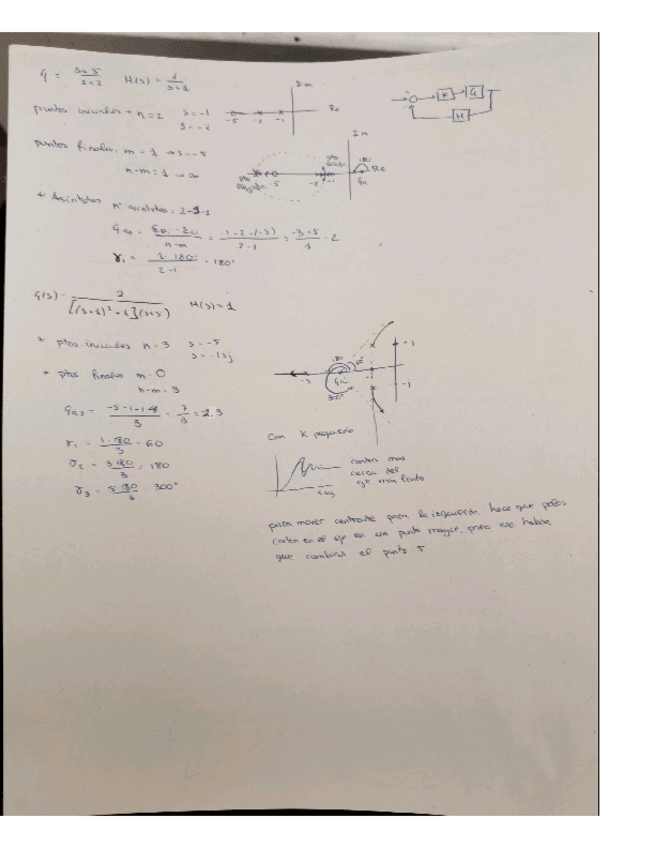 G = s+5 / s+2   H(s) = 1 / s+1
puntos iniciales → n=2   s=-1
s=-2
Im
Re
-5 -2 -1
K G
H
puntos finales m=1 → s=-5
n-m=1 → ∞
Im
Re
5 -2 -1
* Asíntotas
Nº asíntotas = 2-1=1
= -1-2-(-5) / 2-1 = -3+5 / 1 = 2
γ₁ = 1·180 / 2-1 = 180°
G(s) = 2 / [(s+1)²+1](s+5)   H(s)=1
* ptos iniciales n=3   s=-5
* ptos finales m=0
n-m=3
7/3 = 2.3
γ₁ = 1·180/3 = 60
γ₂ = 3·180/3 = 180
γ₃ = 5·180/3 = 300°
300°
Con K pequeño
cerca del
eje mas lento
para mover centroide para la izquierda, hace que polos
corten en el eje en un punto mayor, para eso habra
que cambiar el punto -5